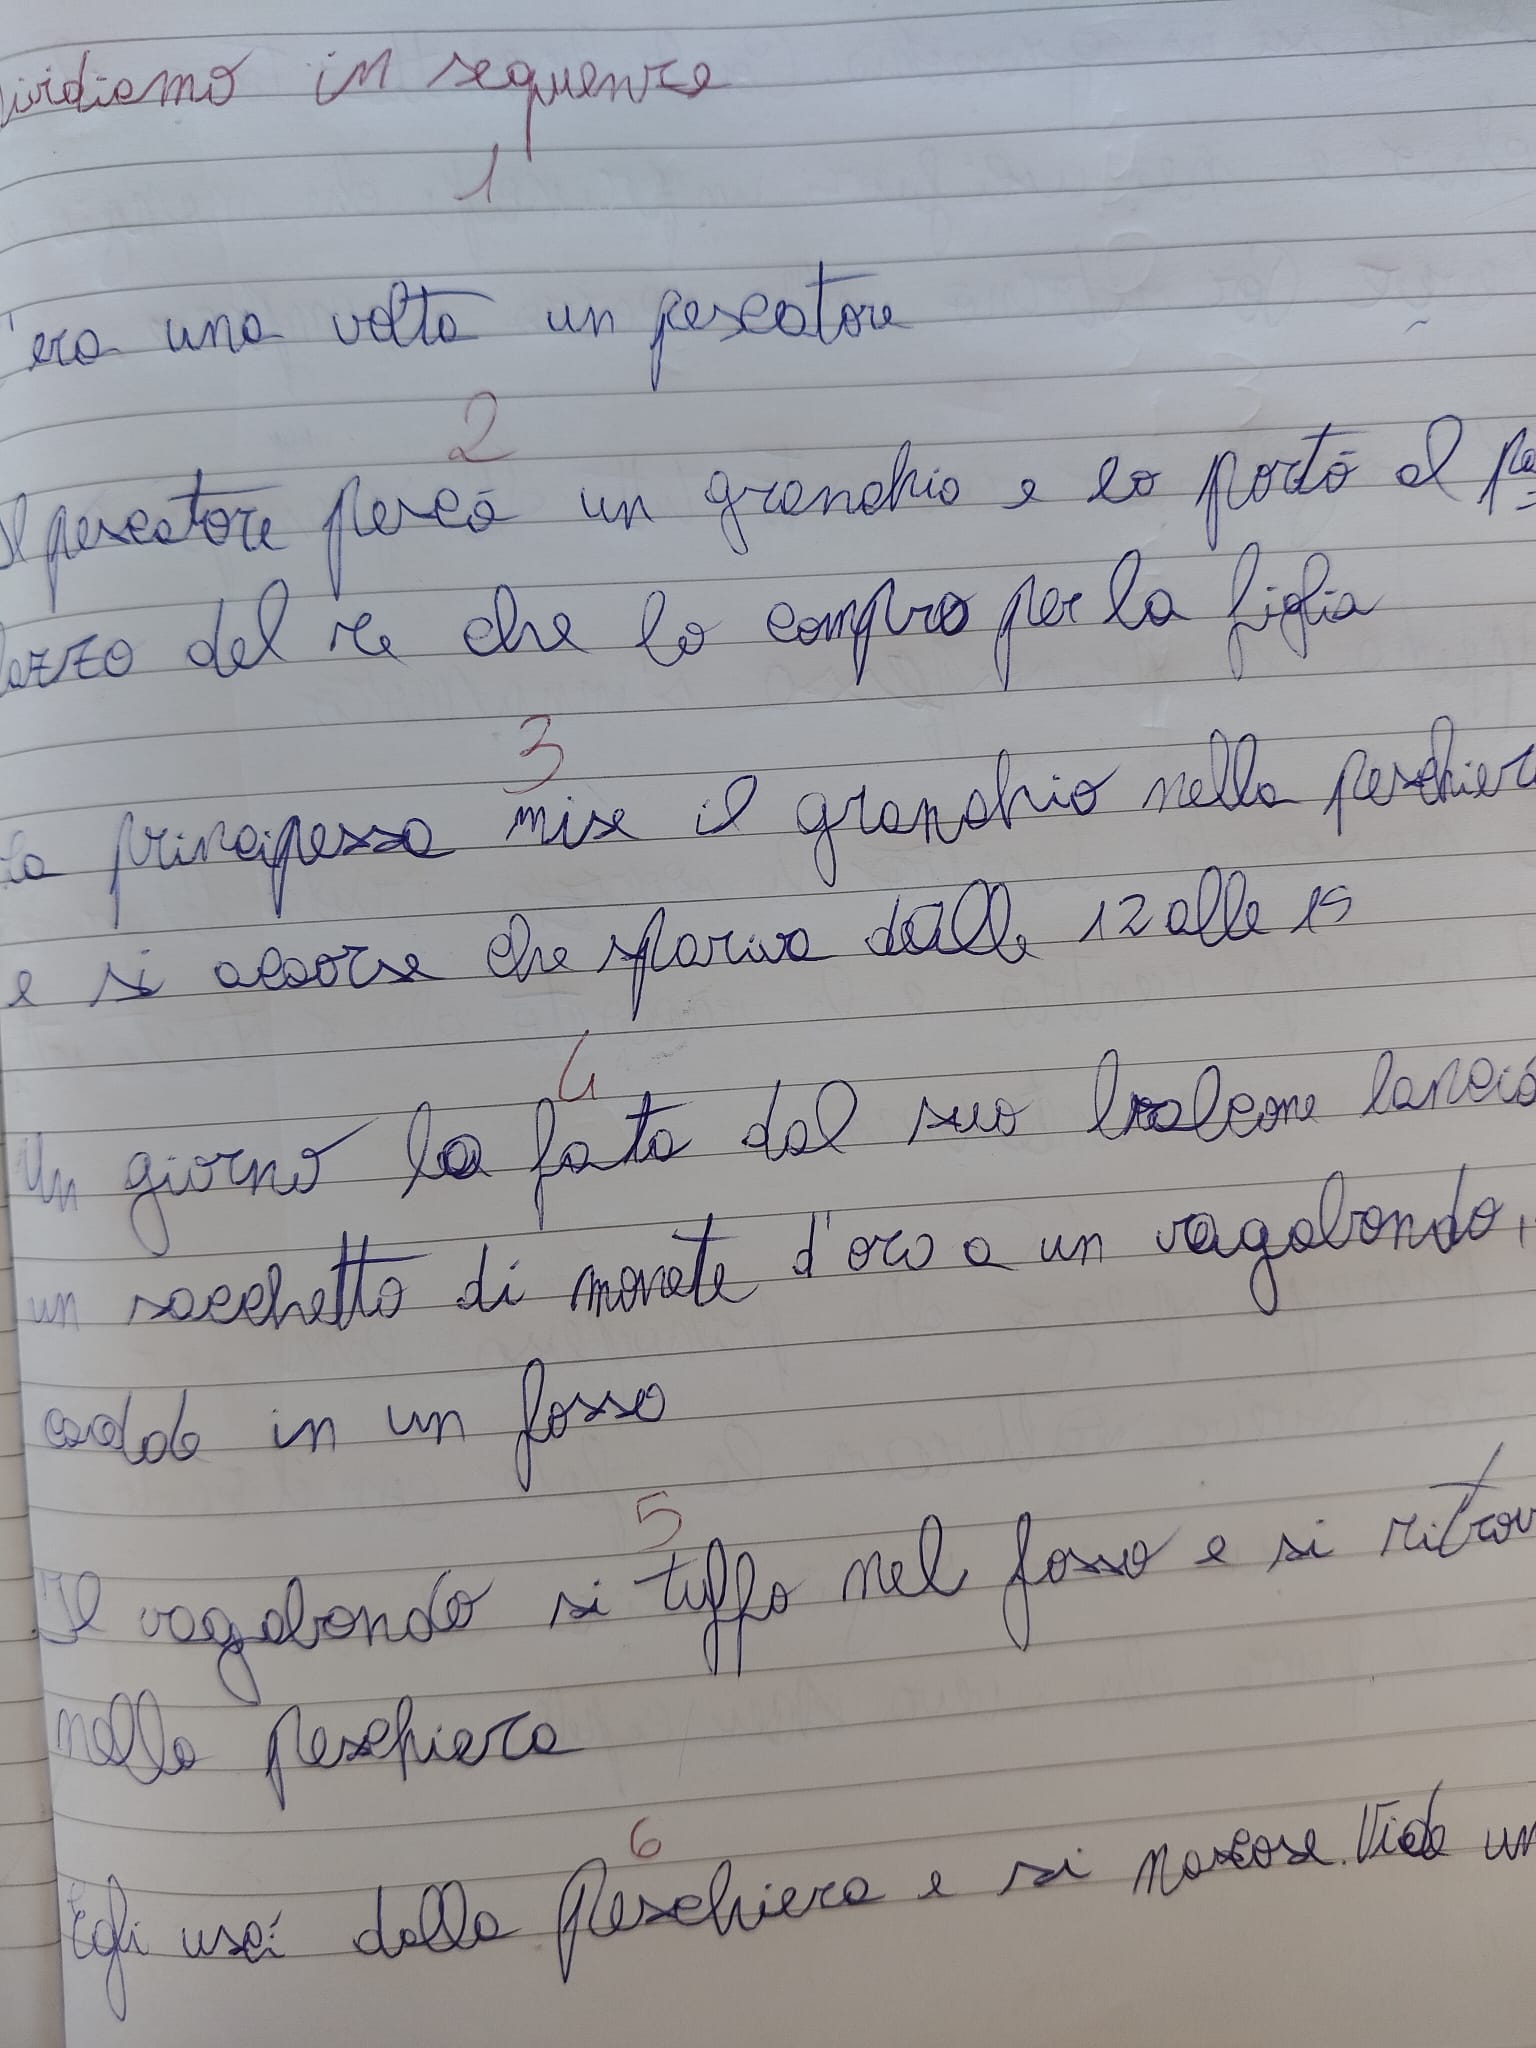 ividiamo in sequenze
1
'era una volta un pescatore
2
Il pescatore pescò un granchio e lo portò al pa
lazzo del re che lo comprò per la figlia
3
La principessa mise il granchio nella peschiera
e si accorse che spariva dalle 12 alle 15
4
Un giorno la fata dal suo balcone lanciò
un sacchetto di monete d'oro a un vagabondo,
cadde in un fosso
5
Il vagabondo si tuffo nel fosso e si ritrov
nella peschiera
6
Egli uscì dalla peschiera e si nascose. Vide un